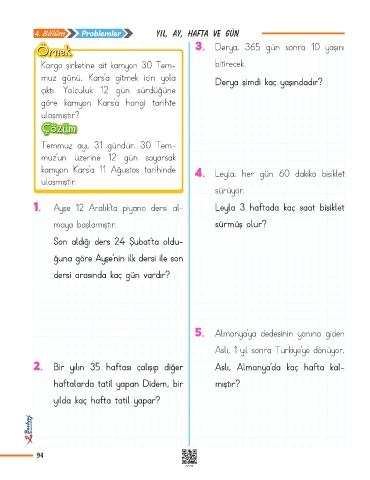 4. Bölüm Problemler YIL, AY, HAFTA VE GÜN
Örnek
Kargo şirketine ait kamyon 30 Tem-
muz günü, Kars'a gitmek için yola
çıktı. Yolculuk 12 gün sürdüğüne
göre kamyon Kars'a hangi tarihte
ulaşmıştır?
Çözüm
Temmuz ayı, 31 gündür. 30 Tem-
muz'un üzerine 12 gün sayarsak
kamyon Kars'a 11 Ağustos tarihinde
ulaşmıştır.
1. Ayşe 12 Aralık'ta piyano dersi al-
maya başlamıştır.
Son aldığı ders 24 Şubat'ta oldu-
ğuna göre Ayşe'nin ilk dersi ile son
dersi arasında kaç gün vardır?
2. Bir yılın 35 haftası çalışıp diğer
haftalarda tatil yapan Didem, bir
yılda kaç hafta tatil yapar?
3. Derya, 365 gün sonra 10 yaşını
bitirecek.
Derya şimdi kaç yaşındadır?
4. Leyla, her gün 60 dakika bisiklet
sürüyor.
Leyla 3 haftada kaç saat bisiklet
sürmüş olur?
5. Almanya'ya dedesinin yanına giden
Aslı, 1 yıl sonra Türkiye'ye dönüyor.
Aslı, Almanya'da kaç hafta kal-
mıştır?
94